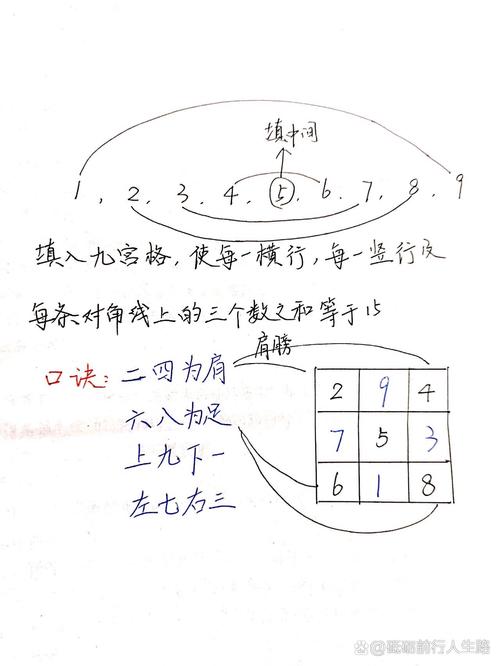 填中间
1, 2, 3, 4, 5, 6, 7, 8, 9
填入九宫格,使每一横行,每一竖行及
每条对角线上的三个数之和等于15
肩膀
口诀:二四为肩
六八为足
上九下一
左七右三
2 9 4
7 5 3
6 1 8
@砥砺前行人生路